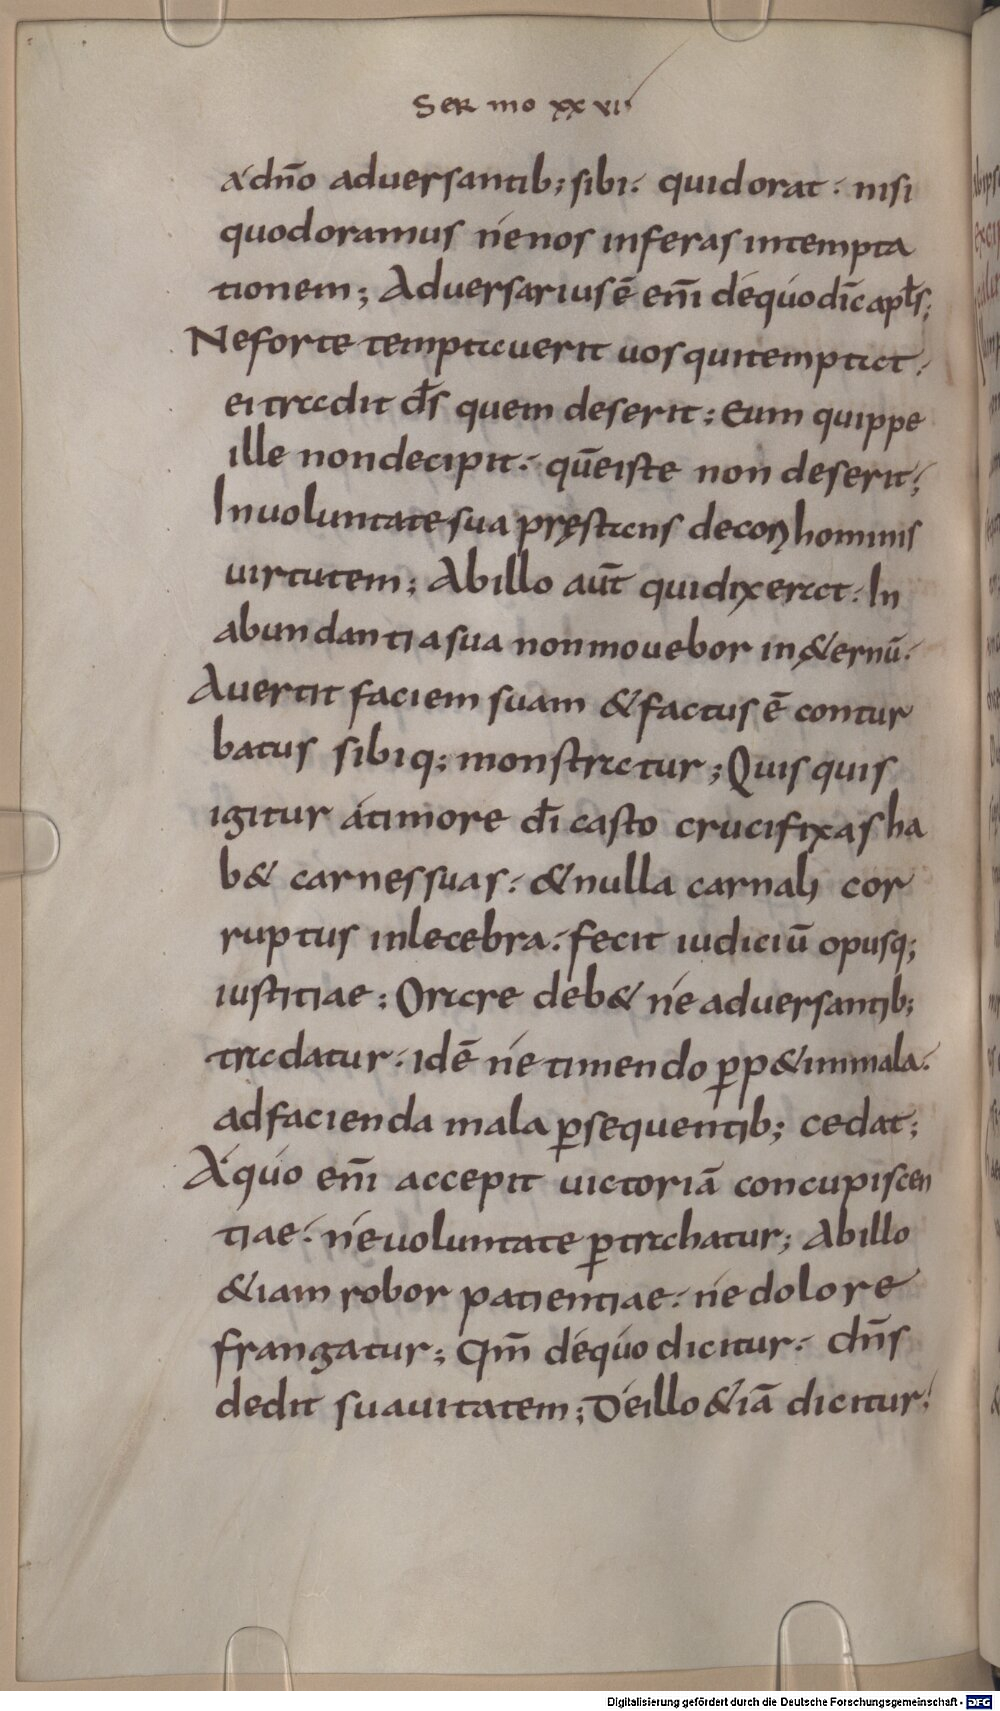 SERmo xx vii
a dn̄o aduersantib; sibi. quid orat. nisi
quod oramus né nos inferas in tempta
tionem; Aduersarius ē enī de quo dīc apłs;
Ne forte temptauerit uos qui temptat.
ei tradit d̄s quem deserit; Eum quippe
ille non decipit. quē iste non deserit;
In uoluntate sua pręstans decori hominis
uirtutem; Ab illo aūt qui dixerat. In
abundantia sua non mouebor in &ernū.
Auertit faciem suam & factus ē contur
batus sibiq; monstratur; Quis quis
igitur á timore dī casto crucifixas ha
b& carnes suas. & nulla carnali cor
ruptus inlecebra. fecit iudiciū opusq;
iustitiae; Orare deb& né aduersantib;
tradatur. idē né timendo ꝑp& im mala.
ad facienda mala ꝑsequentib; cedat;
A quo enī accepit uictoriā concupiscen
tiae. né uoluntate ꝑtrahatur; Ab illo
&iam robor patientiae. né dolore
frangatur; Qm̄ dé quo dicitur. dn̄s
dedit suauitatem; De illo &iā dicitur;
Digitalisierung gefördert durch die Deutsche Forschungsgemeinschaft - DFG